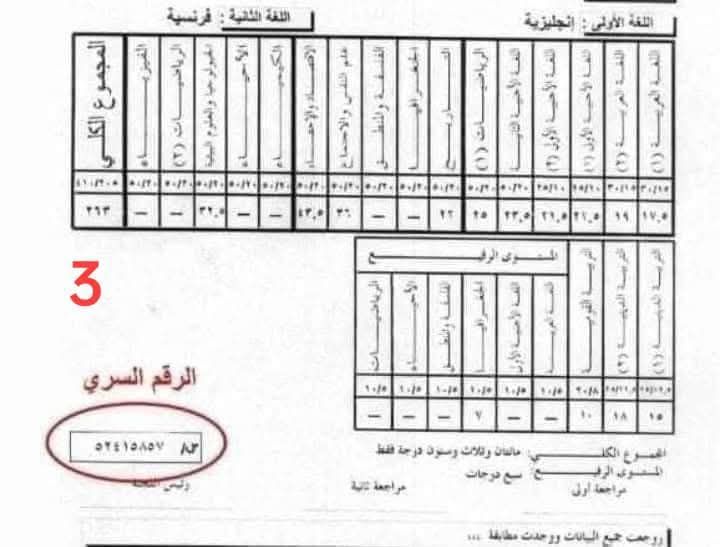 اللغة الأولى : إنجليزية    اللغة الثانية : فرنسية
اللغة العربية (١) | اللغة العربية (٢) | اللغة الأجنبية الأولى (١) | اللغة الأجنبية الأولى (٢) | اللغة الأجنبية الثانية | الرياضيات (١) | التــاريــخ | الجغرافيــا | الفلسفة والمنطق | علم النفس والاجتماع | الاقتصاد والإحصاء | الكيميــاء | الأحيــاء | الجيولوجيا والعلوم البيئية | الرياضيات (٢) | الفيزيــاء | المجموع الكلي
٣٠/١٥ | ٣٠/١٥ | ٢٥/١٠ | ٢٥/١٠ | ٥٠/٢٠ | ٥٠/٢٠ | ٥٠/٢٠ | ٥٠/٢٠ | ٥٠/٢٠ | ٥٠/٢٠ | ٥٠/٢٠ | ٥٠/٢٠ | ٥٠/٢٠ | ٥٠/٢٠ | ٥٠/٢٠ | ٥٠/٢٠ | ٤١٠/٢٠٥
١٧,٥ | ١٩ | ٢١,٥ | ٢٣,٥ | ٢٥ | ٢٢ | — | — | ٣٦ | ٤٣,٥ | — | — | ٣٢,٥ | — | — | ٢٦٣
المستــوى الرفيــع
التربية الدينية (١) | التربية الدينية (٢) | التربية القومية | اللغة العربية | اللغة الأجنبية الأولى | الجغرافيــا | الفلسفة والمنطق | الأحيــاء | الرياضيــات
٢٠/٨ | ١٠/٥ | ١٠/٥ | ١٠/٥ | ١٠/٥ | ١٠/٥ | ١٠/٥
١٥ | ١٨ | ١٠ | — | — | ٧ | — | — | —
3
الرقم السري
٥٢٤١٥٨٥٧
المجموع الكلــي: مائتان وثلاث وستون درجة فقط
المستوى الرفيــع: سبع درجات
مراجعة أولى    مراجعة ثانية    رئيس اللجنة
روجعت جميع البيانات ووجدت مطابقة ...